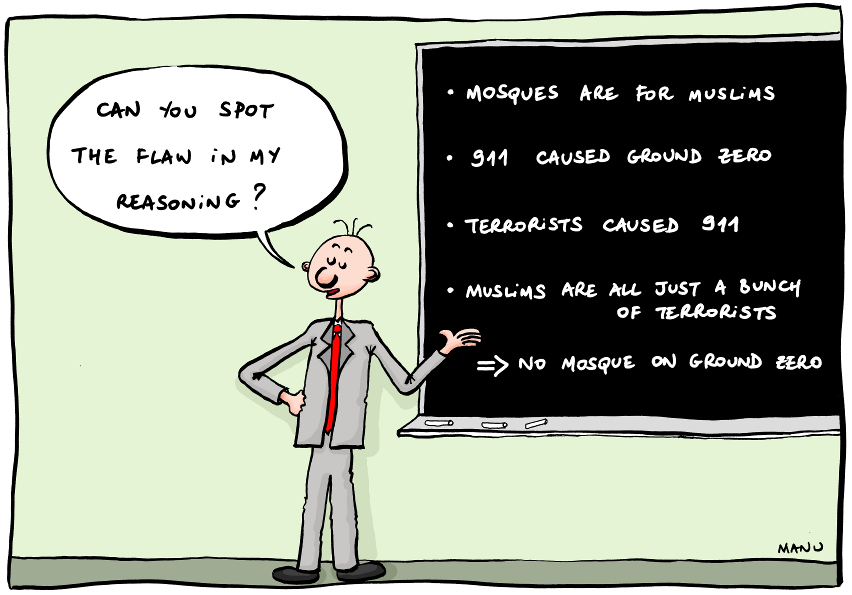 CAN YOU SPOT
THE FLAW iN MY
REASONiNG ?
• MOSQUES ARE FOR MUSLiMS
• 911 CAUSED GROUND ZERO
• TERRORiSTS CAUSED 911
• MUSLiMS ARE ALL JUST A BUNCH
OF TERRORiSTS
⇒ NO MOSQUE ON GROUND ZERO
MANU